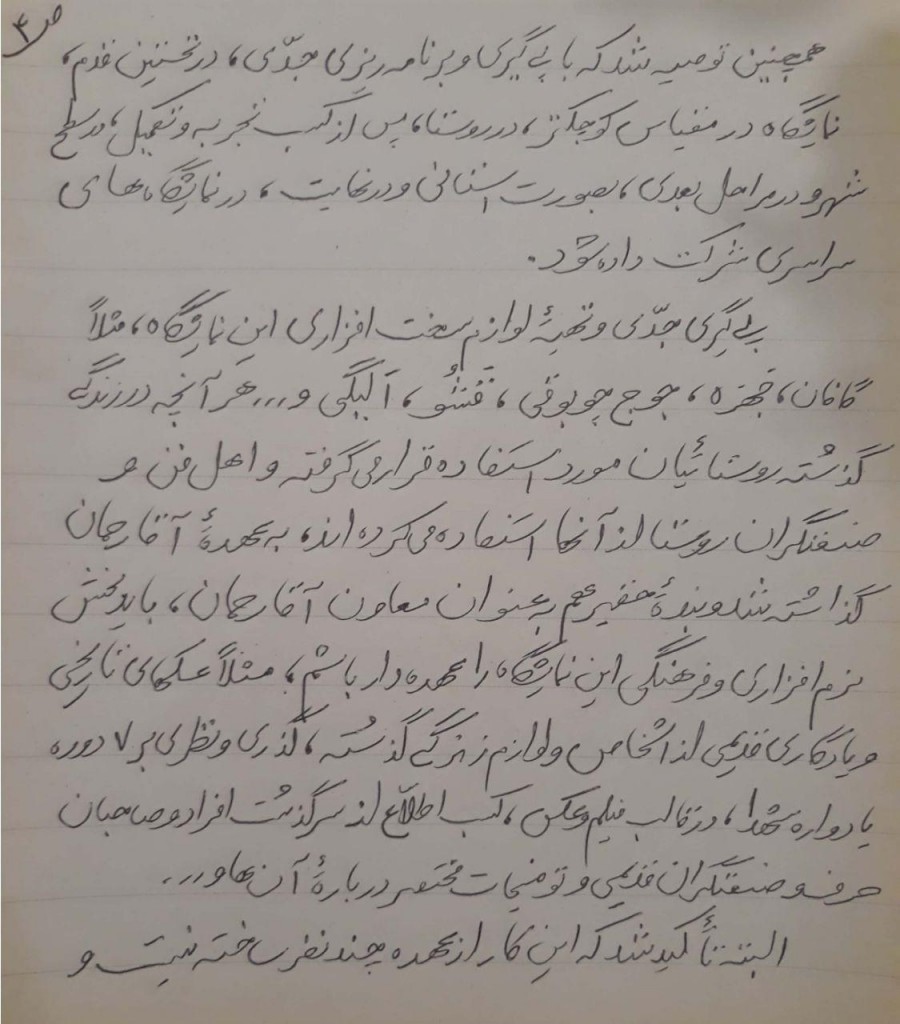 ص ۴
همچنین توصیه شد که با پی‌گیری و برنامه‌ریزی جدّی، در نخستین قدم،
نمایشگاه در مقیاس کوچکتر، در روستا، پس از کسب تجربه و تکمیل، در سطح
شهر و در مراحل بعدی، بصورت استانی و در نهایت، در نمایشگاه‌های
سراسری شرکت داده شود.
پی‌گیری جدّی و تهیۀ لوازم سخت افزاری این نمایشگاه، مثلاً
گافان، قهزه، جوج چوبوقی، قَشُو، آلبلگی و... هر آنچه در زندگی
گذشته روستائیان مورد استفاده قرار می گرفته و اهل فن و
صنعتگران روستا از آنها استفاده می کرده اند، به عهدۀ آقا رحمان
گذاشته شد و بندۀ حقیر هم به عنوان معاون آقا رحمان، باید بخش
نرم افزاری و فرهنگی این نمایشگاه را عهده دار باشم، مثلاً عکسهای تاریخی
و یادگاری قدیمی از اشخاص و لوازم زندگی گذشته، گذری و نظری بر ۷ دوره
یادواره شهدا، در قالب فیلم و عکس، کسب اطلاّع از سرگذشت افراد و صاحبان
حرف و صنعتگران قدیمی و توضیحات مختصر دربارۀ آن ها و...
البته تأکید شد که این کار از عهده چند نفر ساخته نیست و